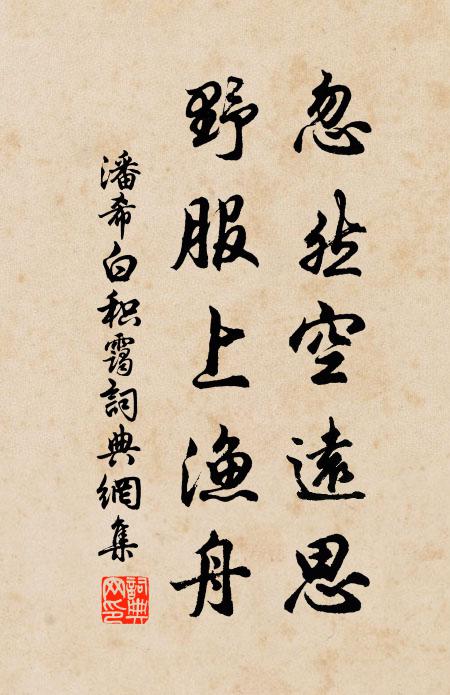 忽然空遠思
野服上漁舟
潘希白积靄詞典網集
詞典网印